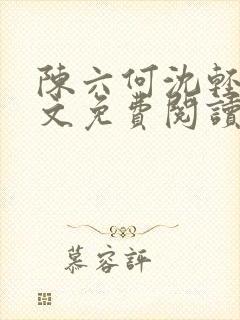 陳六何沈輕
文免費閱讀
慕容評